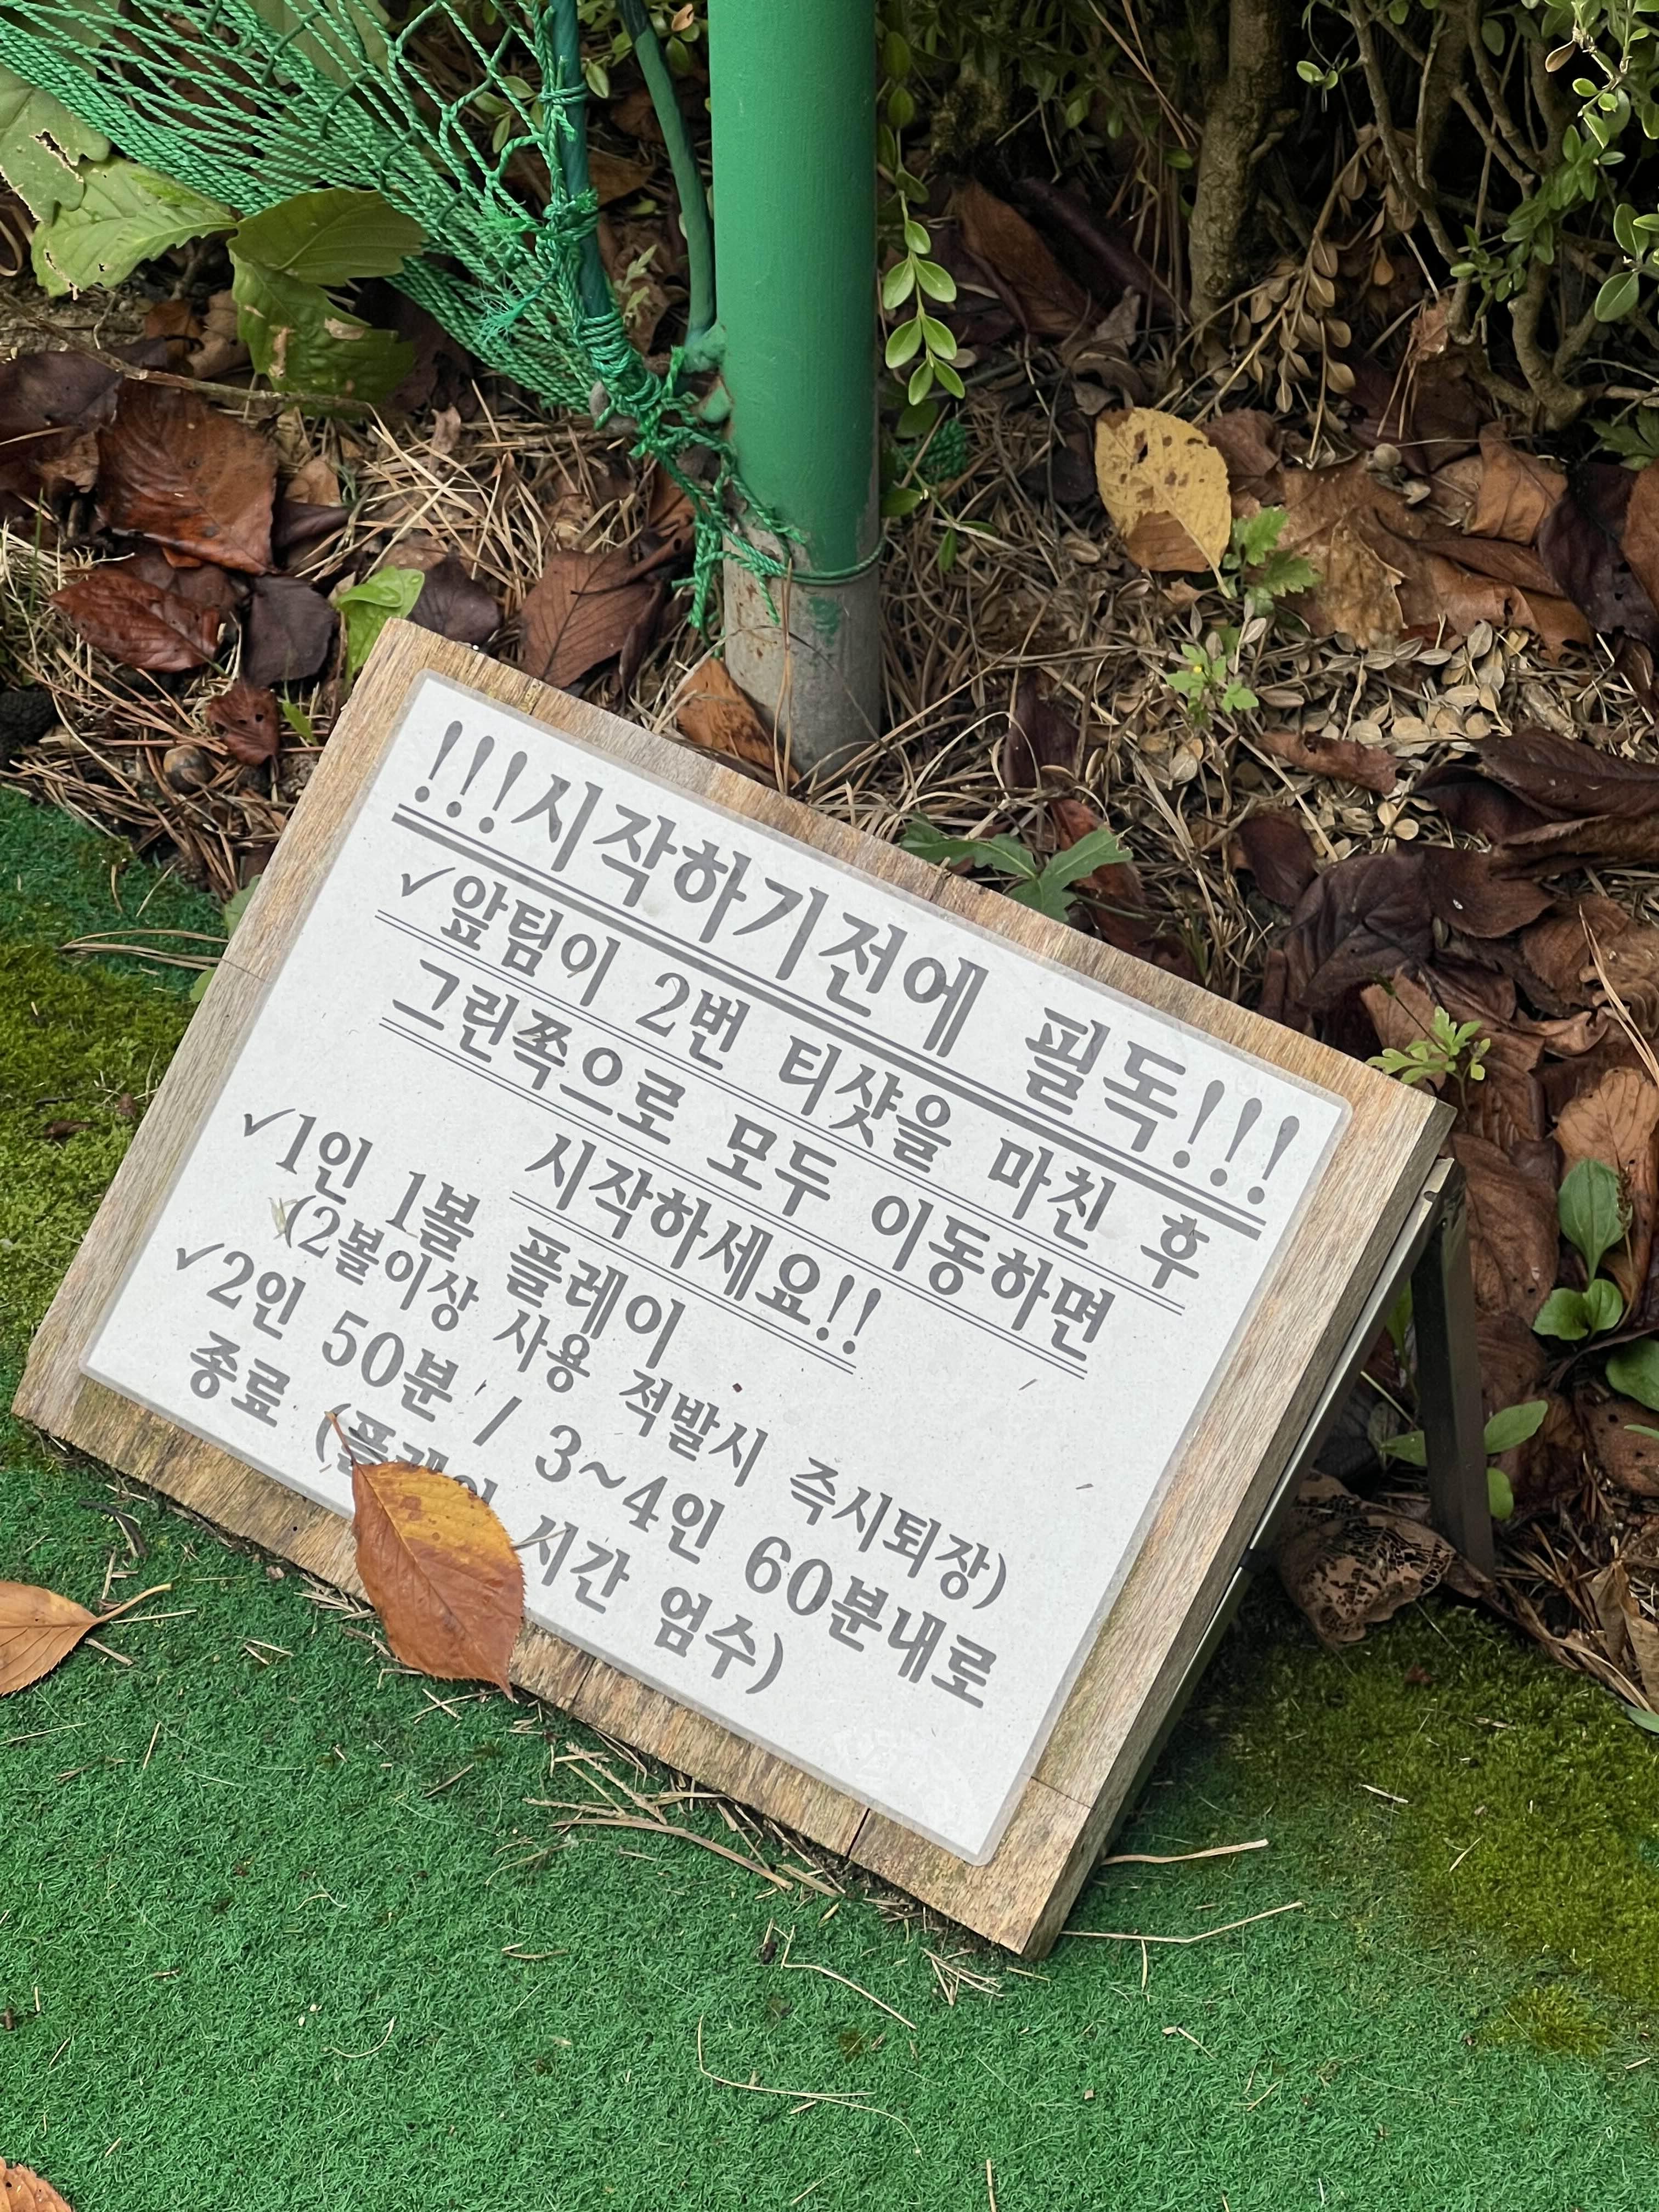 !!!시작하기전에 필독!!!
✓앞팀이 2번 티샷을 마친 후
그린쪽으로 모두 이동하면
시작하세요!!
✓1인 1볼 플레이
(2볼이상 사용 적발시 즉시퇴장)
✓2인 50분 / 3~4인 60분내로
종료 (플레이 시간 엄수)